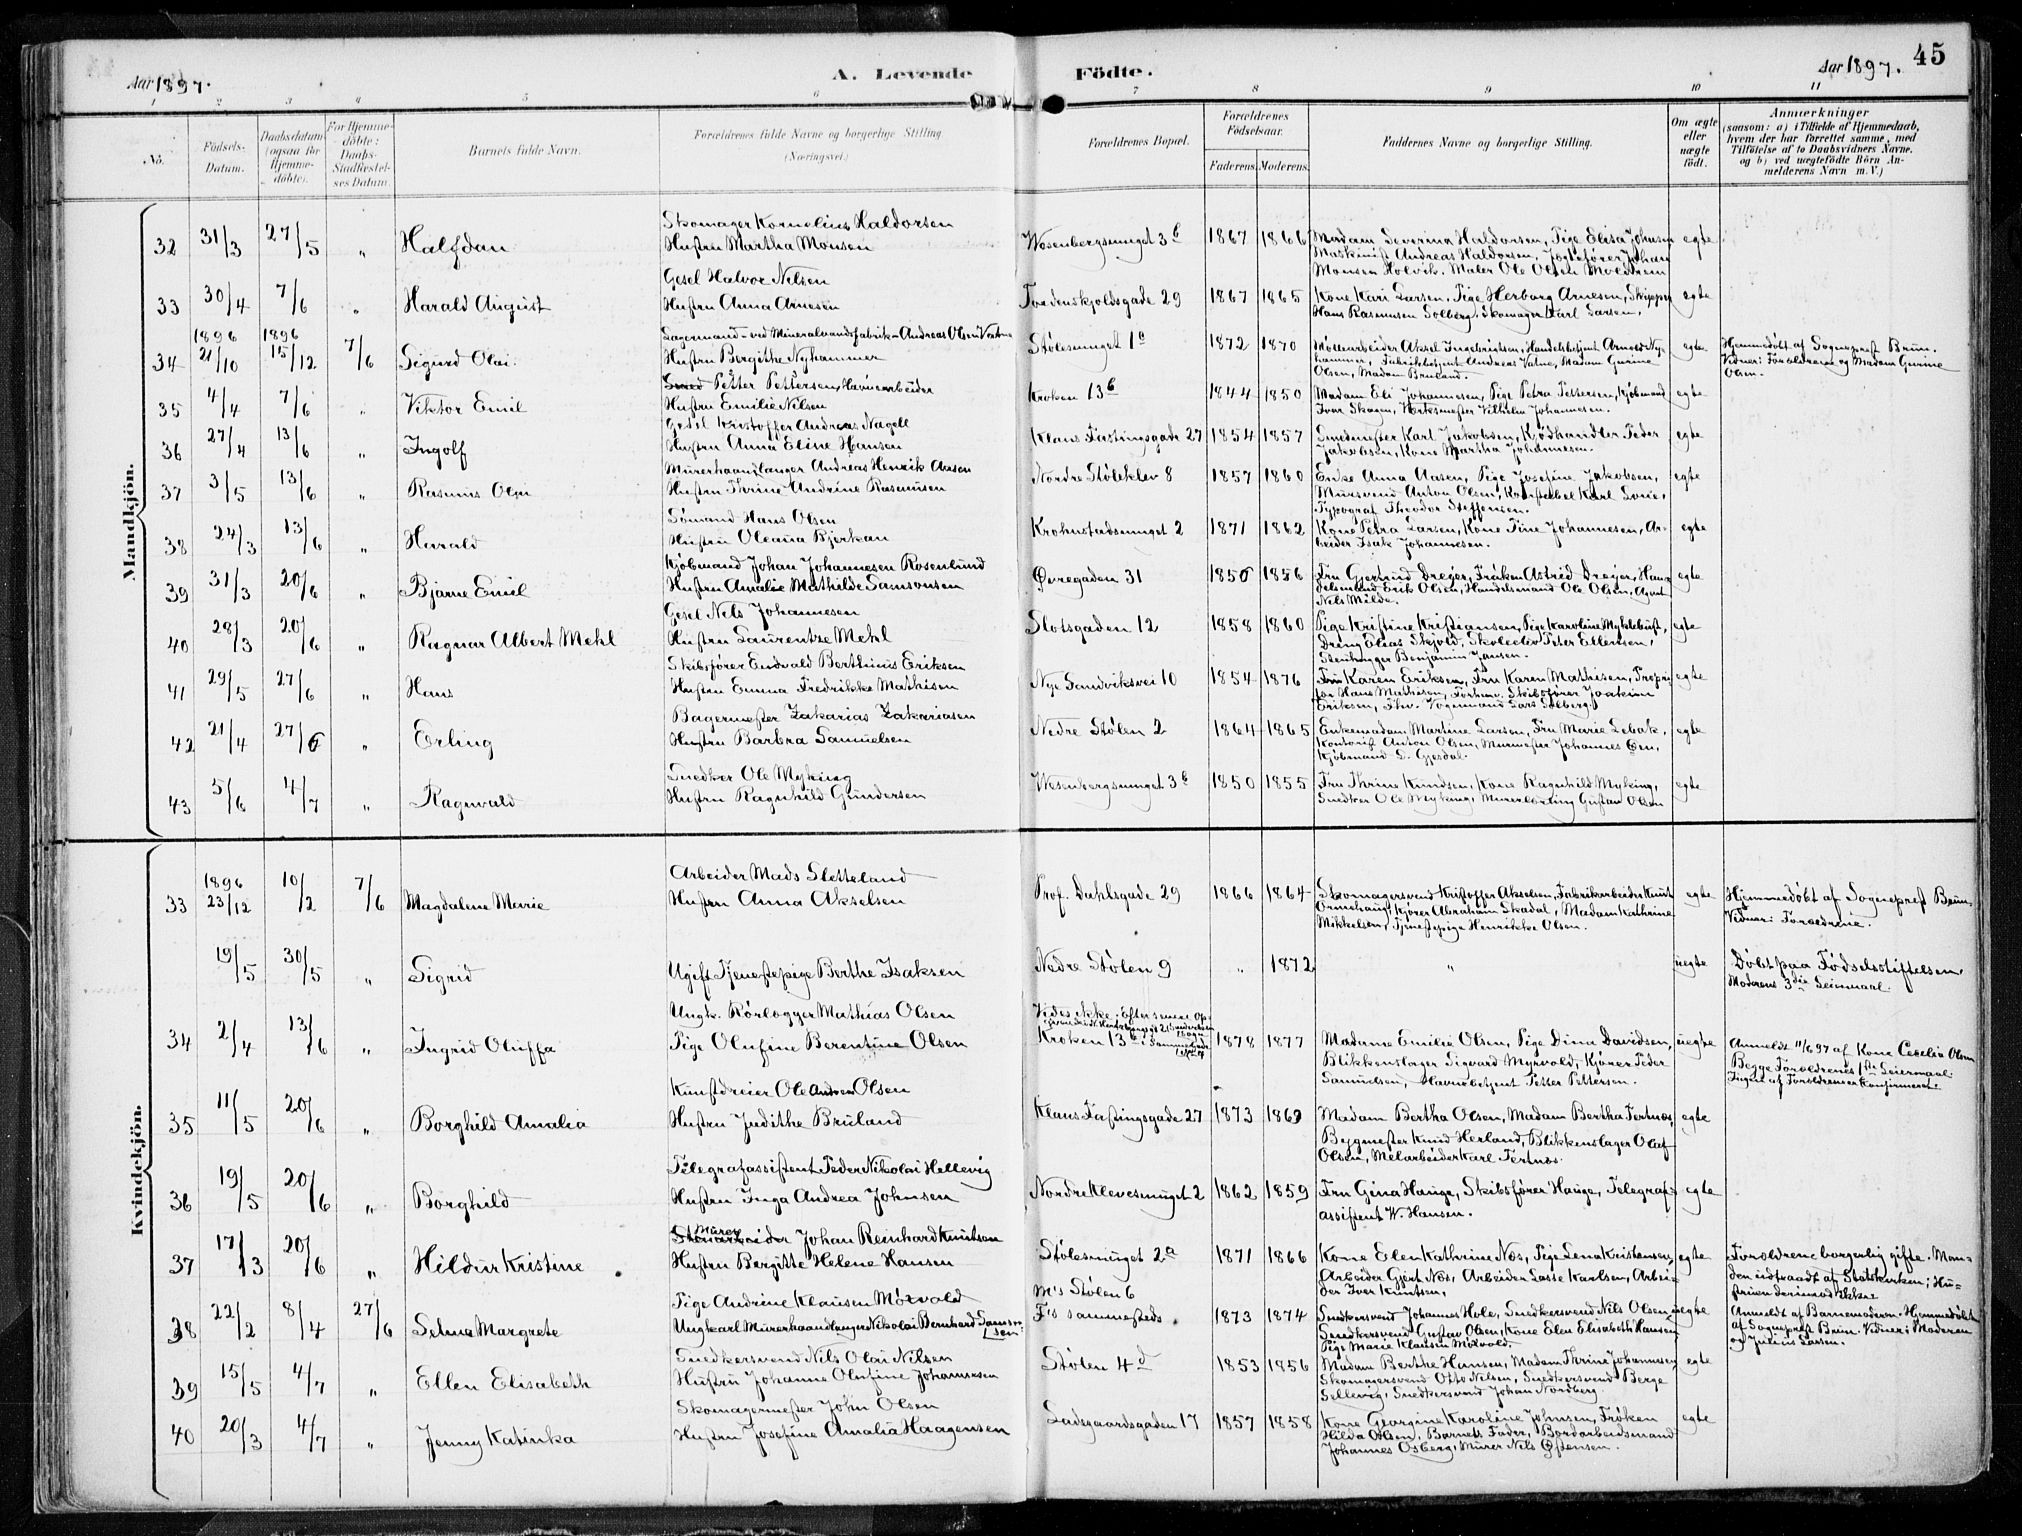 Aar 1897.
A. Levende
Födte.
Aar 1897.
45
1 2 3 4 5 6 7 8 9 10 11
No.
Födsels-
Datum.
Daabsdatum
(ogsaa for
Hjemme-
döbte).
For Hjemme-
döbte:
Daabs-
Stadfæstel-
ses Datum.
Barnets fulde Navn.
Forældrenes fulde Navne og borgerlige Stilling
(Næringsvei.)
Forældrenes Bopæl.
Forældrenes
Födselsaar.
Faderens. Moderens.
Faddernes Navne og borgerlige Stilling.
Om ægte
eller
uægte
födt.
Anmærkninger
(saasom: a) i Tilfælde af Hjemmedaab,
hvem der har forrettet samme, med
Tilföielse af to Daabsvidners Navne.
og b) ved uægtefödte Börn An-
melderens Navn m. V.)
Mandkjön.
Skomager Kornelius Haldorsen
32 31/3 27/5 " Halfdan Hustru Martha Monsen Wesenbergsmuget 3b 1867 1866 Madam Severina Haldorsen, Pige Elisa Johnsen egte
Maskinist Andreas Haldorsen, Jagtefører Johan
Monsen Holvik. Maler Ole Olsen Moldrem
Gesel Halvor Nelsen
33 30/4 7/6 " Harald August Hustru Anna Arnesen Tordenskjoldsgade 29 1867 1865 Kone Kari Larsen, Pige Herborg Arnesen, Skipper egte
Hans Rasmussen Solberg. Skomager Karl Larsen.
1896 1896 Lagermand ved Mineralvandsfabrik Andreas Olsen
34 21/10 15/12 7/6 Sigurd Olai. Hustru Bergithe Nyhammer Stølesmuget 1a 1872 1870 Møllearbeider Aksel Ingebrigtsen, Handelsbetjent Arnold Ny- egte
hammer, Fabrikbetjent Andreas Vatne, Madam Gurine
Olsen, Madam Bruland.
Hjemmedøbt af Sognepræst Brun.
Vidner: Forældrene og Madam Gurine
Olsen.
Petter Pettersen, Havnearbeider
35 4/4 7/6 " Viktor Emil Hustru Emilie Nilsen Kroken 13b 1844 1850 Madam Eli Johannesen, Pige Petra Pettersen, Kjøbmand egte
Ivar Skagen, Verksmester Vilhelm Johannesen.
Gesel Kristoffer Andreas Nagell
36 27/4 13/6 " Ingolf Hustru Anna Eline Hansen Klaus Fastingsgade 27 1854 1857 Smedmester Karl Jakobsen, Kjødhandler Peder egte
Jakobsen, Kone Martha Johannesen.
Murerhaandlanger Andreas Henrik Aasen
37 3/5 13/6 " Rasmus Olai Hustru Thrine Andrine Rasmusen Nordre Støleklev 8 1857 1860 Enke Anna Aasen, Pige Josefine Jakobsen, egte
Mursvend Anton Olsen, Konstabel Karl Lvie,
Typograf Theodor Steffensen.
Sømand Hans Olsen
38 24/3 13/6 " Harald Hustru Oleana Bjerkan Krohnstadsmuget 2 1871 1862 Kone Petra Larsen, Kone Tine Johannesen, Ar- egte
beider Isak Johannesen.
Kjøbmand Johan Johannesen Rosenlund
39 31/3 20/6 " Bjarne Emil Hustru Amalie Mathilde Samsonsen Øvregaden 31 1856 1856 Fru Gjertrud Dreyer, Frøken Astrid Dreyer, Han- egte
delsmand Erik Olsen, Handelsmand Ole Olsen, Agent
Nels Milde.
Gesel Nels Johannesen
40 28/3 20/6 " Ragnar Albert Mehl Hustru Laurentze Mehl Slotsgaden 12 1858 1860 Pige Kristine Kristiansen, Pige Karoline Myklebust, egte
Dreng Elias Skjold, Skoleelev Peter Ellensen,
Stenhugger Benjamin Jansen.
Skibsfører Endvald Berthinus Eriksen
41 29/5 27/6 " Hans Hustru Emma Fredrikke Mathisen Nye Sandviksvei 10 1854 1876 Fru Karen Eriksen, Fru Karen Mathisen, Propri- egte
tær Hans Mathisen, Forhenv. Skibsfører Joakim
Eriksen, Fhv. Vognmand Lars Solberg.
Bagermester Zakarias Zakariasen
42 21/4 27/6 " Erling Hustru Barbra Samuelsen Nedre Stølen 2 1864 1865 Enkemadam Martine Larsen, Fru Marie Lebak, egte
Kontorist Anton Olsen, Murmester Johannes Øen,
Kjøbmand L. Gjesdal.
Snedker Ole Myking
43 5/6 4/7 " Ragnvald Hustru Ragnhild Gundersen Wesenbergsmuget 3b 1850 1855 Fru Thrine Knudsen, Kone Ragnhild Myking, egte
Snedker Ole Myking, Murerlærling Gustav Olsen
Kvindekjön.
1896 Arbeider Mads Sletteland
33 23/12 10/2 7/6 Magdalene Marie Hustru Anna Akselsen Prof. Dahlsgade 29 1866 1864 Skomagersvend Kristoffer Akselsen, Fabrikarbeider Knut egte
Ormehaug, Kjører Abraham Skadal, Madam Kathrine
Mikkelsen, Tjenestepige Henrikke Olsen.
Hjemmedøbt af Sognepræst Brun.
Vidner: Forældrene.
19/5 30/5 " Sigrid Ugift Tjenestepige Berthe Isaksen Nedre Stølen 9 " 1872 " uegte
Døbt paa Fødselsstiftelsen.
Moderens 3die Leiermaal.
Ungk. Rørlægger Mathias Olsen Vides ikke. Efter senere Op-
34 2/4 13/6 " Ingrid Oluffa Pige Olufine Berentine Olsen Kroken 13b 1878 1877 Madame Emilie Olsen, Pige Dina Davidsen, uegte
Blikkenslager Sigvard Myrvold, Kjører Peder
Samuelsen, Havnebetjent Petter Pettersen.
Anmeldt 11/6 97 af Kone Cecelia Olsen
Begge Forældrenes 1ste Leiermaal.
Ingen af Forældrene er Konfirmeret.
Kunstdreier Ole Andreas Olsen
35 11/5 20/6 " Borghild Amalia Hustru Judithe Bruland Klaus Fastingsgade 27 1873 1869 Madam Bertha Olsen, Madam Bertha Tertnæs, egte
Bygmester Knud Herland, Blikkenslager Olaf
Olsen, Mølarbeider Karl Tertnæs.
Telegrafassistent Peder Nikolai Hellevig
36 19/5 20/6 " Borghild Hustru Inga Andrea Johnsen Nordre Klevesmuget 2 1862 1859 Fru Gina Hauge, Skibsfører Hauge, Telegraf- egte
assistent W. Hansen.
Murer Johan Reinhard Knutson
37 17/3 20/6 " Hildur Kristine Hustru Bergitte Helene Hansen Stølesmuget 2a 1871 1866 Kone Elen Kathrine Næs, Pige Lena Kristensen, egte
Arbeider Gjert Næs, Arbeider Lasse Karlsen, Arbei-
der Iver Knutsen.
Forældrene borgerlig gifte. Man-
den udtraadt af Statskirken; Hu-
struen derimod ikke.
Pige Andrine Klausen Mörvold M's Stølen 6
38 22/2 8/4 27/6 Selma Margrete Ungkarl Murerhaandlanger Nikolai Bernhard Samson- F's sammesteds. 1873 1874 Snedkersvend Johannes Hole, Snedkersvend Nils Olsen, uegte
sen
Snedkersvend Gustav Olsen, Kone Elen Elisabeth Hansen
Pige Marie Klausen Mörvold.
Anmeldt af Barnemoderen. Hjemmedøbt
af Sognepræst Brun. Vidner: Moderen
og Julius Larsen.
Snedkersvend Nils Olai Nilsen
39 15/5 4/7 " Ellen Elisabeth Hustru Johanne Olufine Johannesen Stølen 4d 1853 1856 Madam Berthe Hansen, Madam Thrine Johannesen, egte
Skomagersvend Otto Nelsen, Snedkersvend Berge
Sellevig, Snedkersvend Johan Nordberg.
Skomagermester John Olsen
40 20/3 4/7 " Jenny Katinka Hustru Josefine Amalia Haagensen Ladegaardsgaden 17 1857 1858 Kone Georgine Karoline Johnsen, Frøken egte
Hilda Olsen, Barnets Fader, Bordarbeidsmand
Johannes Osberg, Murer Nils Østensen.